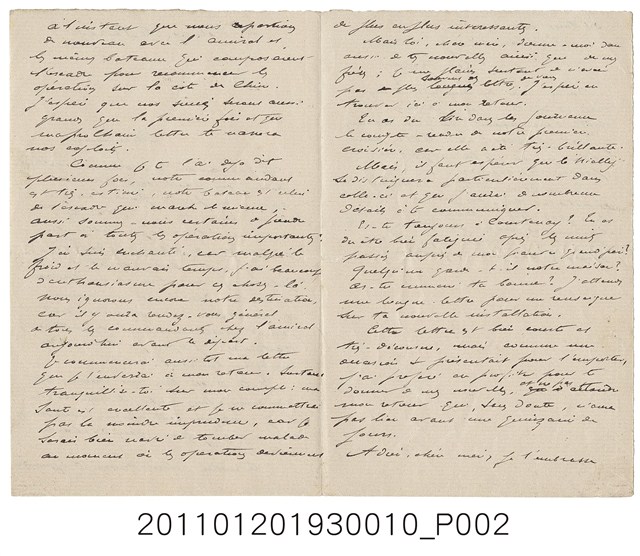 à l'instant que nous repartions
de nouveau avec l'amiral et
les mêmes bateaux qui composaient
l'escadre pour recommencer les
opérations sur la côte de Chine.
J'espère que nos succès seront aussi
grands que la première fois et que
ma prochaine lettre te narrera
nos exploits.
Comme je te l'ai déjà dit
plusieurs fois, notre commandant
est très estimé, notre bateau est celui
de l'escadre qui marche le mieux,
aussi sommes-nous certains de prendre
part à toutes les opérations importantes.
J'en suis enchanté, car malgré le
froid et le mauvais temps, j'ai beaucoup
d'enthousiasme pour ces choses-là.
Nous ignorons encore notre destination,
car il y aura rendez-vous général
de tous les commandants chez l'amiral
aujourd'hui avant le départ.
Je commencerai aussitôt une lettre
que je t'enverrai à mon retour. Surtout
tranquillise-toi sur mon compte: ma
santé est excellente et je ne commettrai
pas la moindre imprudence, car je
serais bien navré de tomber malade
au moment où les opérations deviennent
de plus en plus intéressantes.
Mais toi, chère mère, donne-moi donc
aussi de tes nouvelles ainsi que de mes
frères; je me plains surtout de n'avoir
pas de plus longues lettres, J'espère en
trouver ici à mon retour.
Tu as dû lire dans les journaux
le compte-rendu de notre première
croisière, car elle a été très brillante.
Mais, il faut espérer que le
se distinguera particulièrement dans
celle-ci et que j'aurai de nombreux
détails à te communiquer.
Es-tu toujours à Courtenay? Tu as
dû être bien fatiguée après les nuits
passées auprès de mon pauvre grand père!
Quelqu'un garde-t-il notre maison?
As-tu emmené ta bonne? J'attends
une longue lettre pour me renseigner
sur ta nouvelle installation.
Cette lettre est bien courte et
très décousue, mais comme une
occasion se présentait pour l'emporter,
j'ai préféré en profiter pour te
donner de mes nouvelles, et ne pas attendre
mon retour qui, sans doute, n'aura
pas lieu avant une quinzaine de
jours.
Adieu, chère mère, je t'embrasse
201101201930010_P002